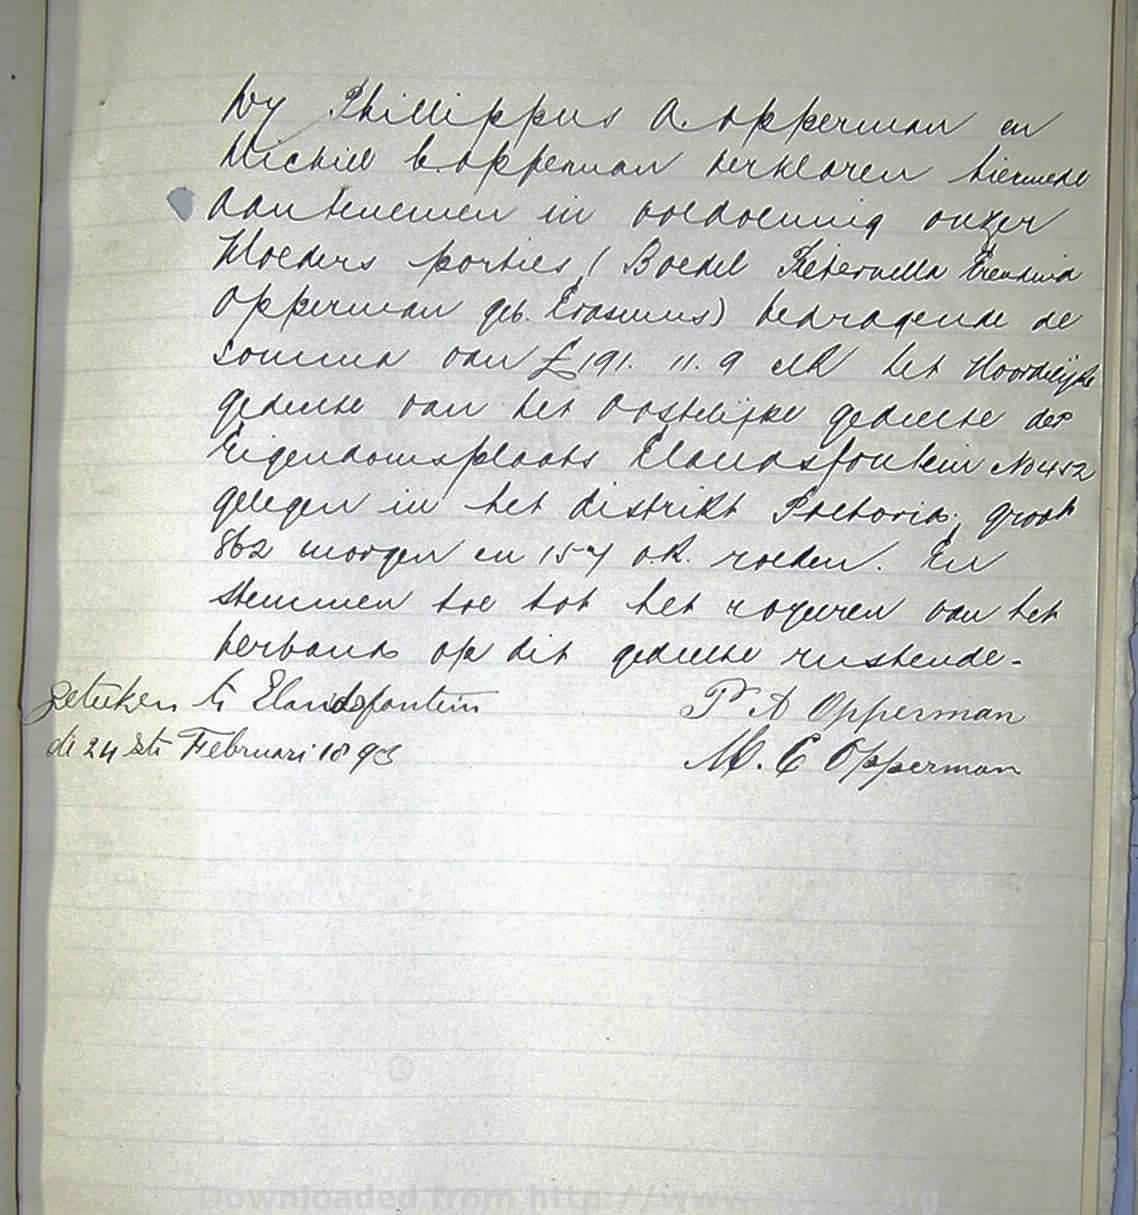 Wy Phillippus A. Opperman en
Michiel C. Opperman verklaren hiermede
aantenemen in voldoening onzer
Moeders porties (Boedel Petronella
Opperman geb. Erasmus) bedragende de
somma van £191. 11. 9 elk het Noordelijke
gedeelte van het Oostelijke gedeelte der
Eigendomsplaats Elandsfontein No 452
gelegen in het distrikt Pretoria, groot
862 morgen en 157 o.R. roeden. En
stemmen toe tot het royeren van het
verband op dit gedeelte rustende.
Geteeken te Elandsfontein
di 24 ste Februari 1893
P A Opperman
M. C Opperman
Downloaded from http://www.